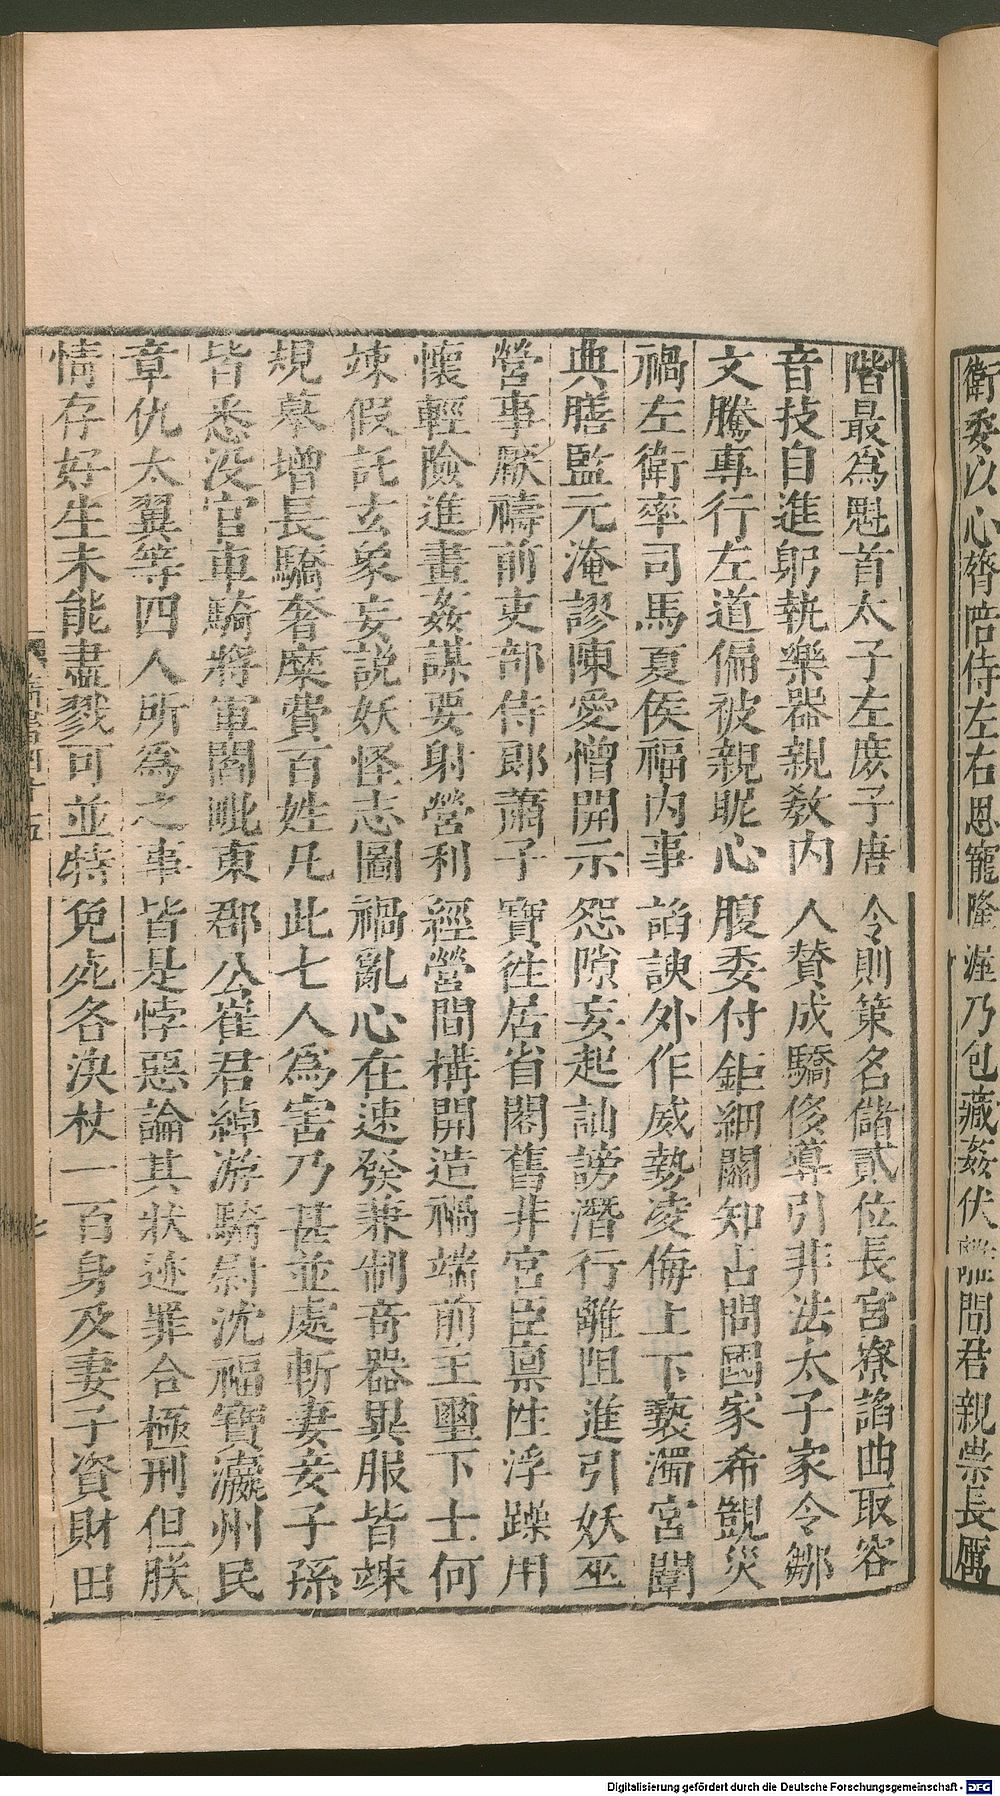 衛委以心膂陪侍左右恩寵隆渥乃包藏姦伏離間君親崇長厲
階最為魁首太子左庶子唐令則策名儲貳位長宮寮諂曲取容
音技自進躬執樂器親敎內人贊成驕侈導引非法太子家令鄒
文騰專行左道偏被親昵心腹委付鉅細關知占問國家希覬災
禍左衛率司馬夏侯福內事諂諛外作威勢凌侮上下褻濁宮闈
典膳監元淹謬陳愛憎開示怨隙妄起訕謗潛行離阻進引妖巫
營事厭禱前吏部侍郎蕭子寶徃居省閣舊非宮臣稟性浮躁用
懷輕險進畫姦謀要射營利經營間構開造禍端前主璽下士何
竦假託玄象妄説妖怪志圖禍亂心在速發兼制奇器異服皆竦
規摹增長驕奢糜費百姓凡此七人為害乃甚並處斬妻妾子孫
皆悉没官車騎將軍閻毗東郡公崔君綽游騎尉沈福寶瀛州民
章仇太翼等四人所為之事皆是悖惡論其狀迹罪合極刑但朕
情存好生未能盡戮可並特免死各決杖一百身及妻子資財田
Digitalisierung gefördert durch die Deutsche Forschungsgemeinschaft - DFG